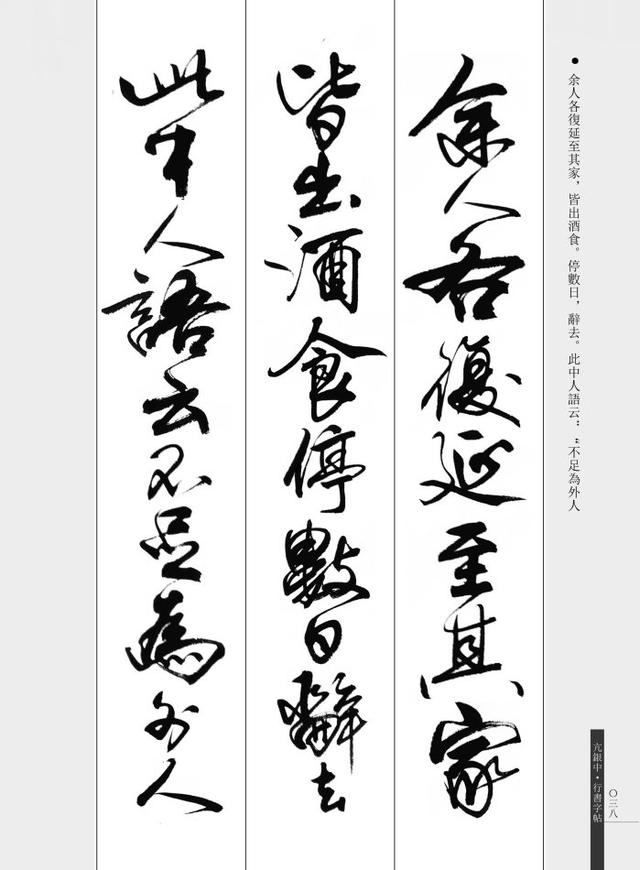 ● 余人各復延至其家，皆出酒食。停數日，辭去。此中人語云：“不足為外人
余人各復延至其家
皆出酒食停數日辭去
此中人語云不足為外人
亢銀中·行書字帖
〇三八